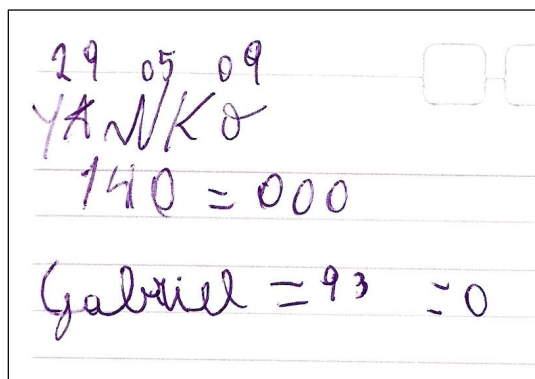 29 05 09
YANKO
140 = 000
Gabriel = 93 = 0